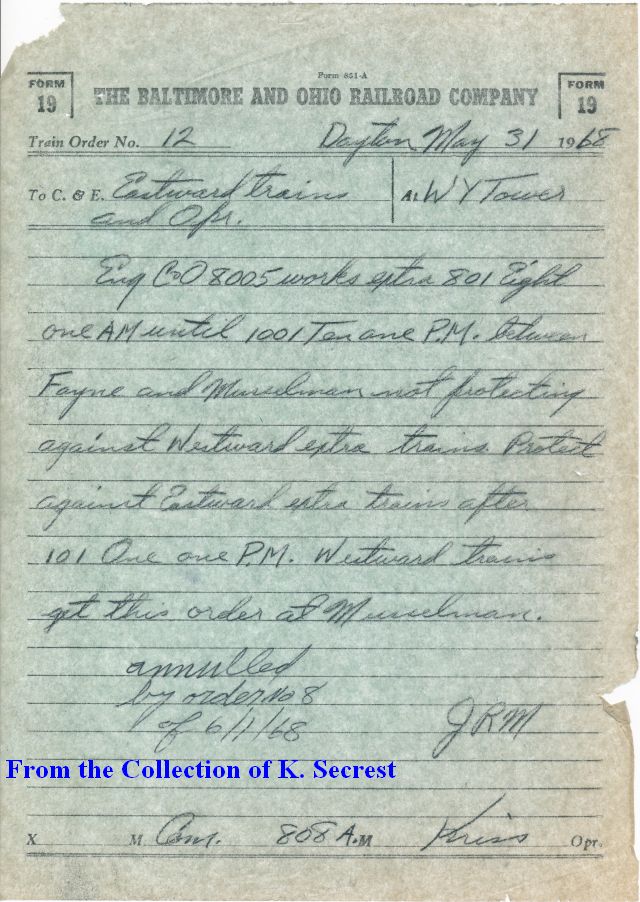 Form 851-A
FORM 19 THE BALTIMORE AND OHIO RAILROAD COMPANY FORM 19
Train Order No. 12 Dayton May 31 1968
To C. & E. Eastward trains At WY Tower
and Opr.
Eng C&O 8005 works extra 801 Eight
one AM until 1001 Ten one P.M. between
Fayne and Musselman not protecting
against Westward extra trains. Protect
against Eastward extra trains after
101 One one P.M. Westward trains
get this order at Musselman.
annulled
by order No 8
of 6/1/68 JRM
From the Collection of K. Secrest
X M Com. 808 A.M Kriss Opr.